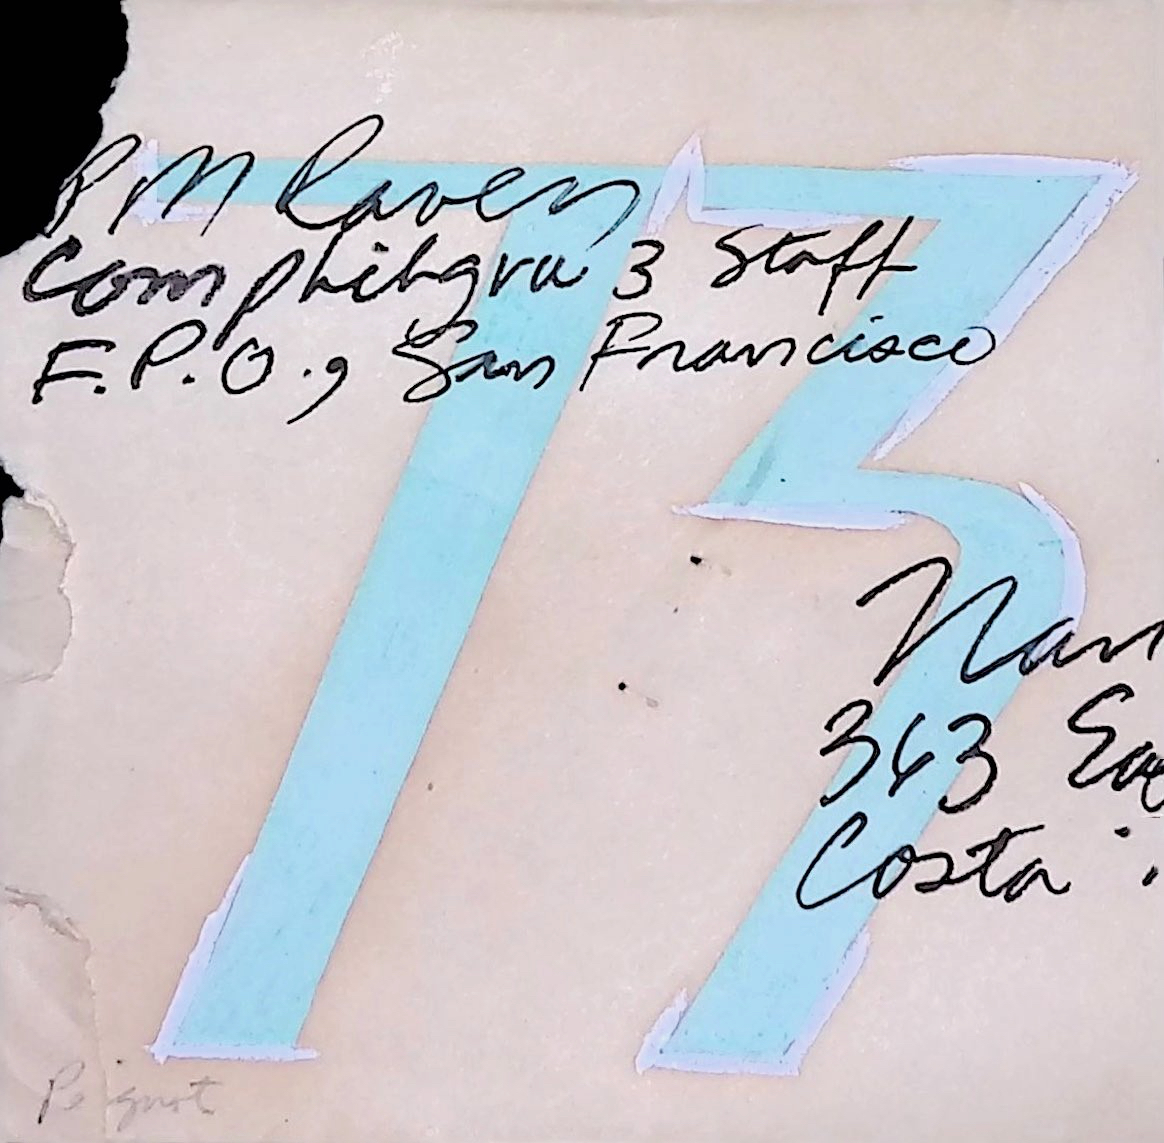 73
PM Raven
Comphibgru 3 Staff
F.P.O., San Francisco
Nan
363 Eas
Costa
Peignot